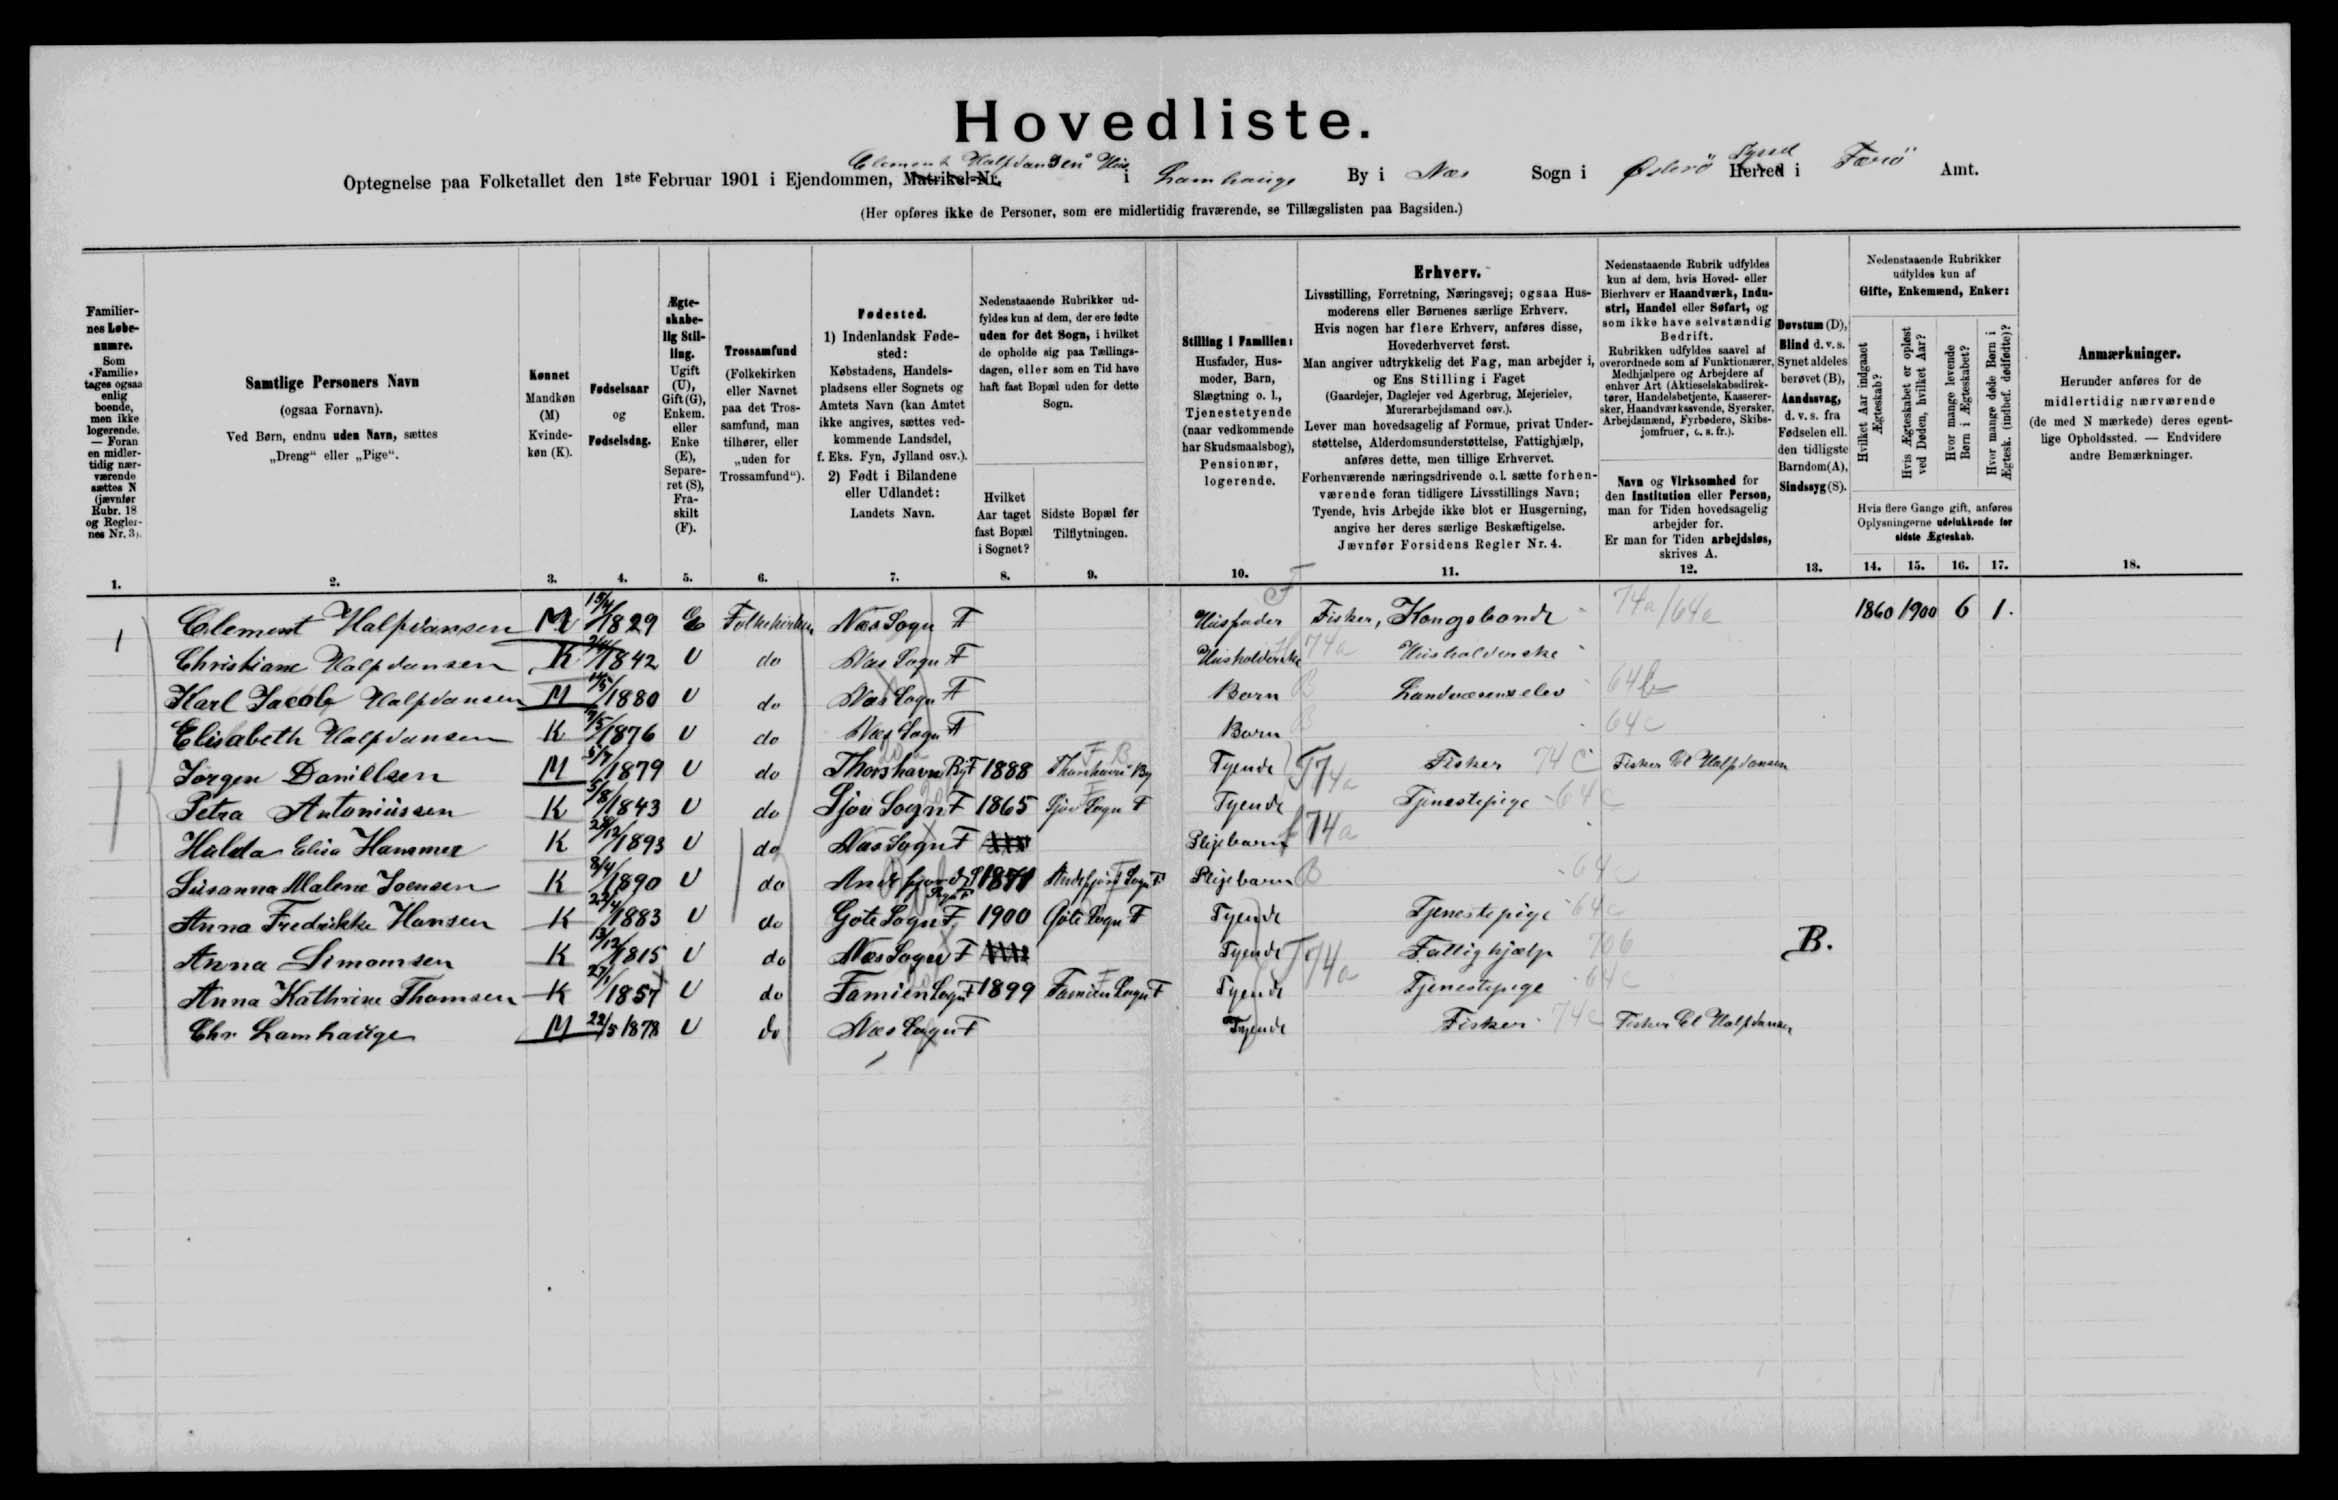 Hovedliste.
Clement Halfdansens Hus Syssel
Optegnelse paa Folketallet den 1ste Februar 1901 i Ejendommen, Matrikel-Nr. i Lamhauge By i Næs Sogn i Østerö Herred i Færö Amt.
(Her opføres ikke de Personer, som ere midlertidig fraværende, se Tillægslisten paa Bagsiden.)
Familiernes Løbenumre.
Som «Familie» tages ogsaa enlig boende, men ikke logerende. — Foran en midlertidig nærværende sættes N (jævnfør Rubr. 18 og Reglernes Nr. 3).
Samtlige Personers Navn
(ogsaa Fornavn).
Ved Børn, endnu uden Navn, sættes
„Dreng“ eller „Pige“.
Kønnet
Mandkøn
(M)
Kvinde-
køn (K).
Fødselsaar
og
Fødselsdag.
Ægte-
skabe-
lig Stil-
ling.
Ugift
(U),
Gift (G),
Enkem.
eller
Enke
(E),
Separe-
ret (S),
Fra-
skilt
(F).
Trossamfund
(Folkekirken
eller Navnet
paa det Tros-
samfund, man
tilhører, eller
„uden for
Trossamfund“).
Fødested.
1) Indenlandsk Føde-
sted:
Købstadens, Handels-
pladsens eller Sognets og
Amtets Navn (kan Amtet
ikke angives, sættes ved-
kommende Landsdel,
f. Eks. Fyn, Jylland osv.).
2) Født i Bilandene
eller Udlandet:
Landets Navn.
Nedenstaaende Rubrikker ud-
fyldes kun af dem, der ere fødte
uden for det Sogn, i hvilket
de opholde sig paa Tællings-
dagen, eller som en Tid have
haft fast Bopæl uden for dette
Sogn.
Hvilket
Aar taget
fast Bopæl
i Sognet?
Sidste Bopæl før
Tilflytningen.
Stilling i Familien:
Husfader, Hus-
moder, Barn,
Slægtning o. l.,
Tjenestetyende
(naar vedkommende
har Skudsmaalsbog),
Pensionær,
logerende.
Erhverv.
Livsstilling, Forretning, Næringsvej; ogsaa Hus-
moderens eller Børnenes særlige Erhverv.
Hvis nogen har flere Erhverv, anføres disse,
Hovederhvervet først.
Man angiver udtrykkelig det Fag, man arbejder i,
og Ens Stilling i Faget
(Gaardejer, Daglejer ved Agerbrug, Mejerielev,
Murerarbejdsmand osv.).
Lever man hovedsagelig af Formue, privat Under-
støttelse, Alderdomsunderstøttelse, Fattighjælp,
anføres dette, men tillige Erhvervet.
Forhenværende næringsdrivende o. l. sætte forhen-
værende foran tidligere Livsstillings Navn;
Tyende, hvis Arbejde ikke blot er Husgerning,
angive her deres særlige Beskæftigelse.
Jævnfør Forsidens Regler Nr. 4.
Nedenstaaende Rubrik udfyldes
kun af dem, hvis Hoved- eller
Bierhverv er Haandværk, Indu-
stri, Handel eller Søfart, og
som ikke have selvstændig
Bedrift.
Rubrikken udfyldes saavel af
overordnede som af Funktionærer,
Medhjælpere og Arbejdere af
enhver Art (Aktieselskabsdirek-
tører, Handelsbetjente, Kasserer-
sker, Haandværkssvende, Syersker,
Arbejdsmænd, Fyrbødere, Skibs-
jomfruer, o. s. fr.).
Navn og Virksomhed for
den Institution eller Person,
man for Tiden hovedsagelig
arbejder for.
Er man for Tiden arbejdsløs,
skrives A.
Døvstum (D),
Blind d. v. s.
Synet aldeles
berøvet (B),
Aandssvag,
d. v. s. fra
Fødselen ell.
den tidligste
Barndom (A),
Sindssyg (S).
Nedenstaaende Rubrikker
udfyldes kun af
Gifte, Enkemænd, Enker:
Hvilket Aar indgaaet
Ægteskab?
Hvis Ægteskabet er opløst
ved Døden, hvilket Aar?
Hvor mange levende
Børn i Ægteskabet?
Hvor mange døde Børn i
Ægtesk. (indbef. dødfødte)?
Hvis flere Gange gift, anføres
Oplysningerne udelukkende for
sidste Ægteskab.
Anmærkninger.
Herunder anføres for de
midlertidig nærværende
(de med N mærkede) deres egent-
lige Opholdssted. — Endvidere
andre Bemærkninger.
1. 2. 3. 4. 5. 6. 7. 8. 9. 10. 11. 12. 13. 14. 15. 16. 17. 18.
1 Clement Halfdansen M 15/4 1829 E Folkekirken Næs Sogn F Husfader Fisker, Kongsbonde 74a/64a 1860 1900 6 1.
Christiane Halfdansen K 1842 U do Næs Sogn F Husholderske 74a Husholderske
Karl Jacob Halfdansen M 1880 U do Næs Sogn F Barn B Landvæsenselev 64b
Elisabeth Halfdansen K 1876 U do Næs Sogn F Barn B 64c
Jørgen Daniellsen M 5/7 1879 U do Thorshavn By F 1888 Thorshavn By Tyende T74a Fisker 74c Fisker Cl Halfdansen
Petra Antoniussen K 5/8 1843 U do Sjov Sogn F 1865 Sjov Sogn F Tyende Tjenestepige 64c
Hulda Elisa Hammer K 28/12 1893 U do Næs Sogn F Plejebarn 74a
Susanna Malene Joensen K 8/4 1890 U do Andefjord Sogn F Andefjord Sogn F Plejebarn B 64c
Anna Fredrikke Hansen K 22/4 1883 U do Gøte Sogn F 1900 Gøte Sogn F Tyende Tjenestepige 64c
Anna Simonsen K 13/12 1815 U do Næs Sogn F Tyende T74a Fattighjælp 706 B.
Anna Kathrine Thomsen K 27/1 1857 U do Famien Sogn F 1899 Famien Sogn F Tyende Tjenestepige 64c
Chr Lamhauge M 22/5 1878 U do Næs Sogn F Tyende Fisker 74c Fisker Cl Halfdansen